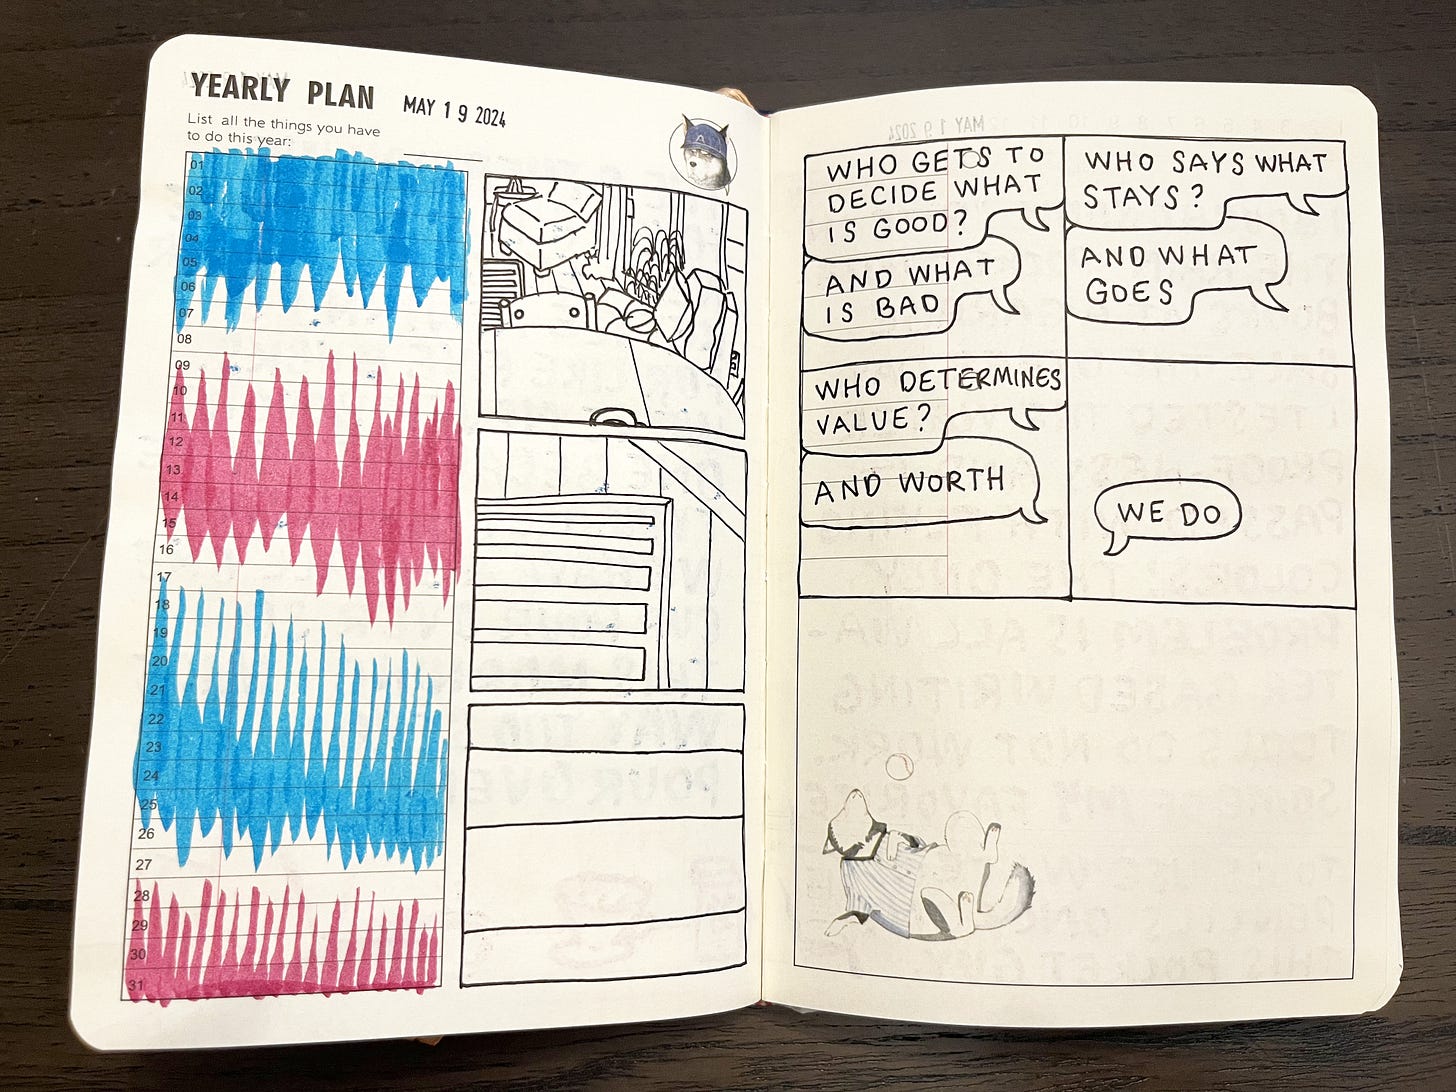 YEARLY PLAN
MAY 19 2024
List all the things you have
to do this year:
01
02
03
04
05
06
07
08
09
10
11
12
13
14
15
16
17
18
19
20
21
22
23
24
25
26
27
28
29
30
31
A
WHO GETS TO
DECIDE WHAT
IS GOOD?
AND WHAT
IS BAD
WHO SAYS WHAT
STAYS?
AND WHAT
GOES
WHO DETERMINES
VALUE?
AND WORTH
WE DO